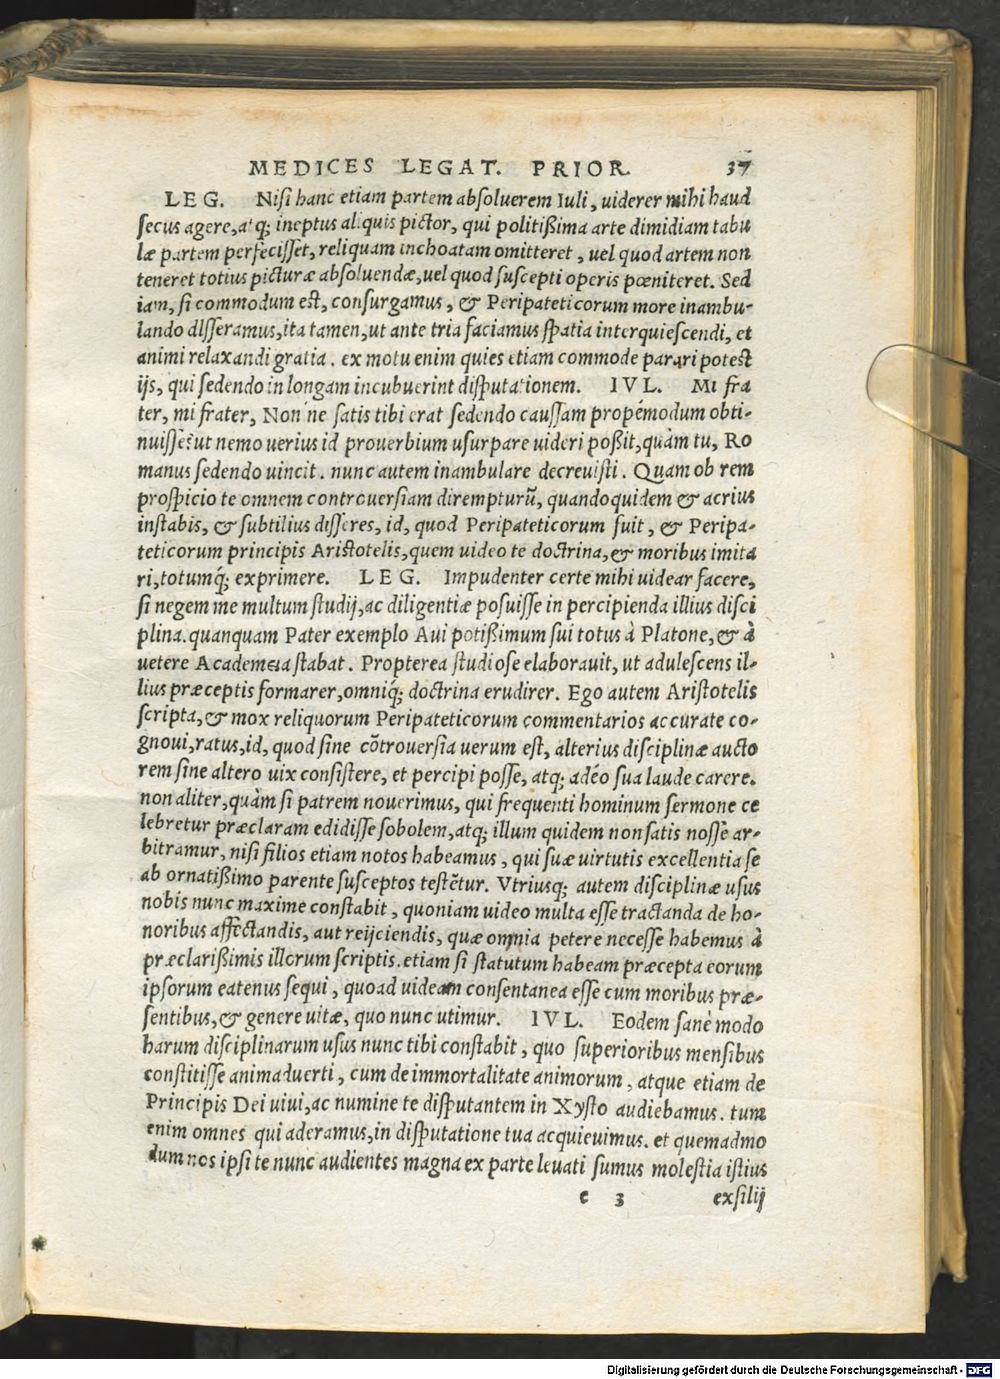 MEDICES LEGAT. PRIOR. 37
LEG. Nisi hanc etiam partem absoluerem Iuli, uiderer mihi haud
secus agere, atq; ineptus aliquis pictor, qui politißima arte dimidiam tabu
læ partem perfecisset, reliquam inchoatam omitteret, uel quod artem non
teneret totius picturæ absoluendæ, uel quod suscepti operis pœniteret. Sed
iam, si commodum est, consurgamus, & Peripateticorum more inambu-
lando disseramus, ita tamen, ut ante tria faciamus spatia interquiescendi, et
animi relaxandi gratia. ex motu enim quies etiam commode parari potest
ijs, qui sedendo in longam incubuerint disputationem. IVL. Mi fra
ter, mi frater, Non ne satis tibi erat sedendo caussam propémodum obti-
nuisse? ut nemo uerius id prouerbium usurpare uideri poßit, quàm tu, Ro
manus sedendo uincit. nunc autem inambulare decreuisti. Quam ob rem
prospicio te omnem controuersiam dirempturũ, quandoquidem & acrius
instabis, & subtilius disseres, id, quod Peripateticorum fuit, & Peripa-
teticorum principis Aristotelis, quem uideo te doctrina, & moribus imita
ri, totumq́; exprimere. LEG. Impudenter certe mihi uidear facere,
si negem me multum studij, ac diligentiæ posuisse in percipienda illius disci
plina. quanquam Pater exemplo Aui potißimum sui totus à Platone, & à
uetere Academeia stabat. Propterea studiose elaborauit, ut adulescens il-
lius præceptis formarer, omniq́; doctrina erudirer. Ego autem Aristotelis
scripta, & mox reliquorum Peripateticorum commentarios accurate co-
gnoui, ratus, id, quod sine cõtrouersia uerum est, alterius disciplinæ aucto
rem sine altero uix consistere, et percipi posse, atq; adéo sua laude carere.
non aliter, quàm si patrem nouerimus, qui frequenti hominum sermone ce
lebretur præclaram edidisse sobolem, atq; illum quidem non satis nosse ar-
bitramur, nisi filios etiam notos habeamus, qui suæ uirtutis excellentia se
ab ornatißimo parente susceptos testẽtur. Vtriusq; autem disciplinæ usus
nobis nunc maxime constabit, quoniam uideo multa esse tractanda de ho-
noribus affectandis, aut reijciendis, quæ omnia petere necesse habemus à
præclarißimis illorum scriptis. etiam si statutum habeam præcepta eorum
ipsorum eatenus sequi, quoad uideam consentanea esse cum moribus præ-
sentibus, & genere uitæ, quo nunc utimur. IVL. Eodem sanè modo
harum disciplinarum usus nunc tibi constabit, quo superioribus mensibus
constitisse animaduerti, cum de immortalitate animorum, atque etiam de
Principis Dei uiui, ac numine te disputantem in Xysto audiebamus. tum
enim omnes qui aderamus, in disputatione tua acquieuimus. et quemadmo
dum nos ipsi te nunc audientes magna ex parte leuati sumus molestia istius
e 3 exsilij
Digitalisierung gefördert durch die Deutsche Forschungsgemeinschaft - DFG